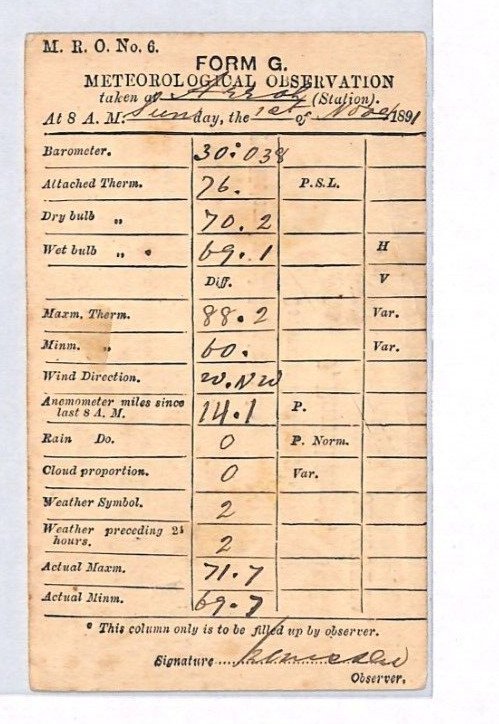 M. R. O. No. 6.
FORM G.
METEOROLOGICAL OBSERVATION
taken at Arrah (Station).
At 8 A. M. Sunday, the 1st of Nov 1891
Barometer. 30.038
Attached Therm. 76. P.S.L.
Dry bulb „ 70.2
Wet bulb „ 69.1 H
Diff. V
Maxm. Therm. 88.2 Var.
Minm. „ 60. Var.
Wind Direction. W.NW
Anemometer miles since
last 8 A. M. 14.1 P.
Rain Do. 0 P. Norm.
Cloud proportion. 0 Var.
Weather Symbol. 2
Weather preceding 24
hours. 2
Actual Maxm. 71.7
Actual Minm. 69.7
* This column only is to be filled up by observer.
Signature
Observer.